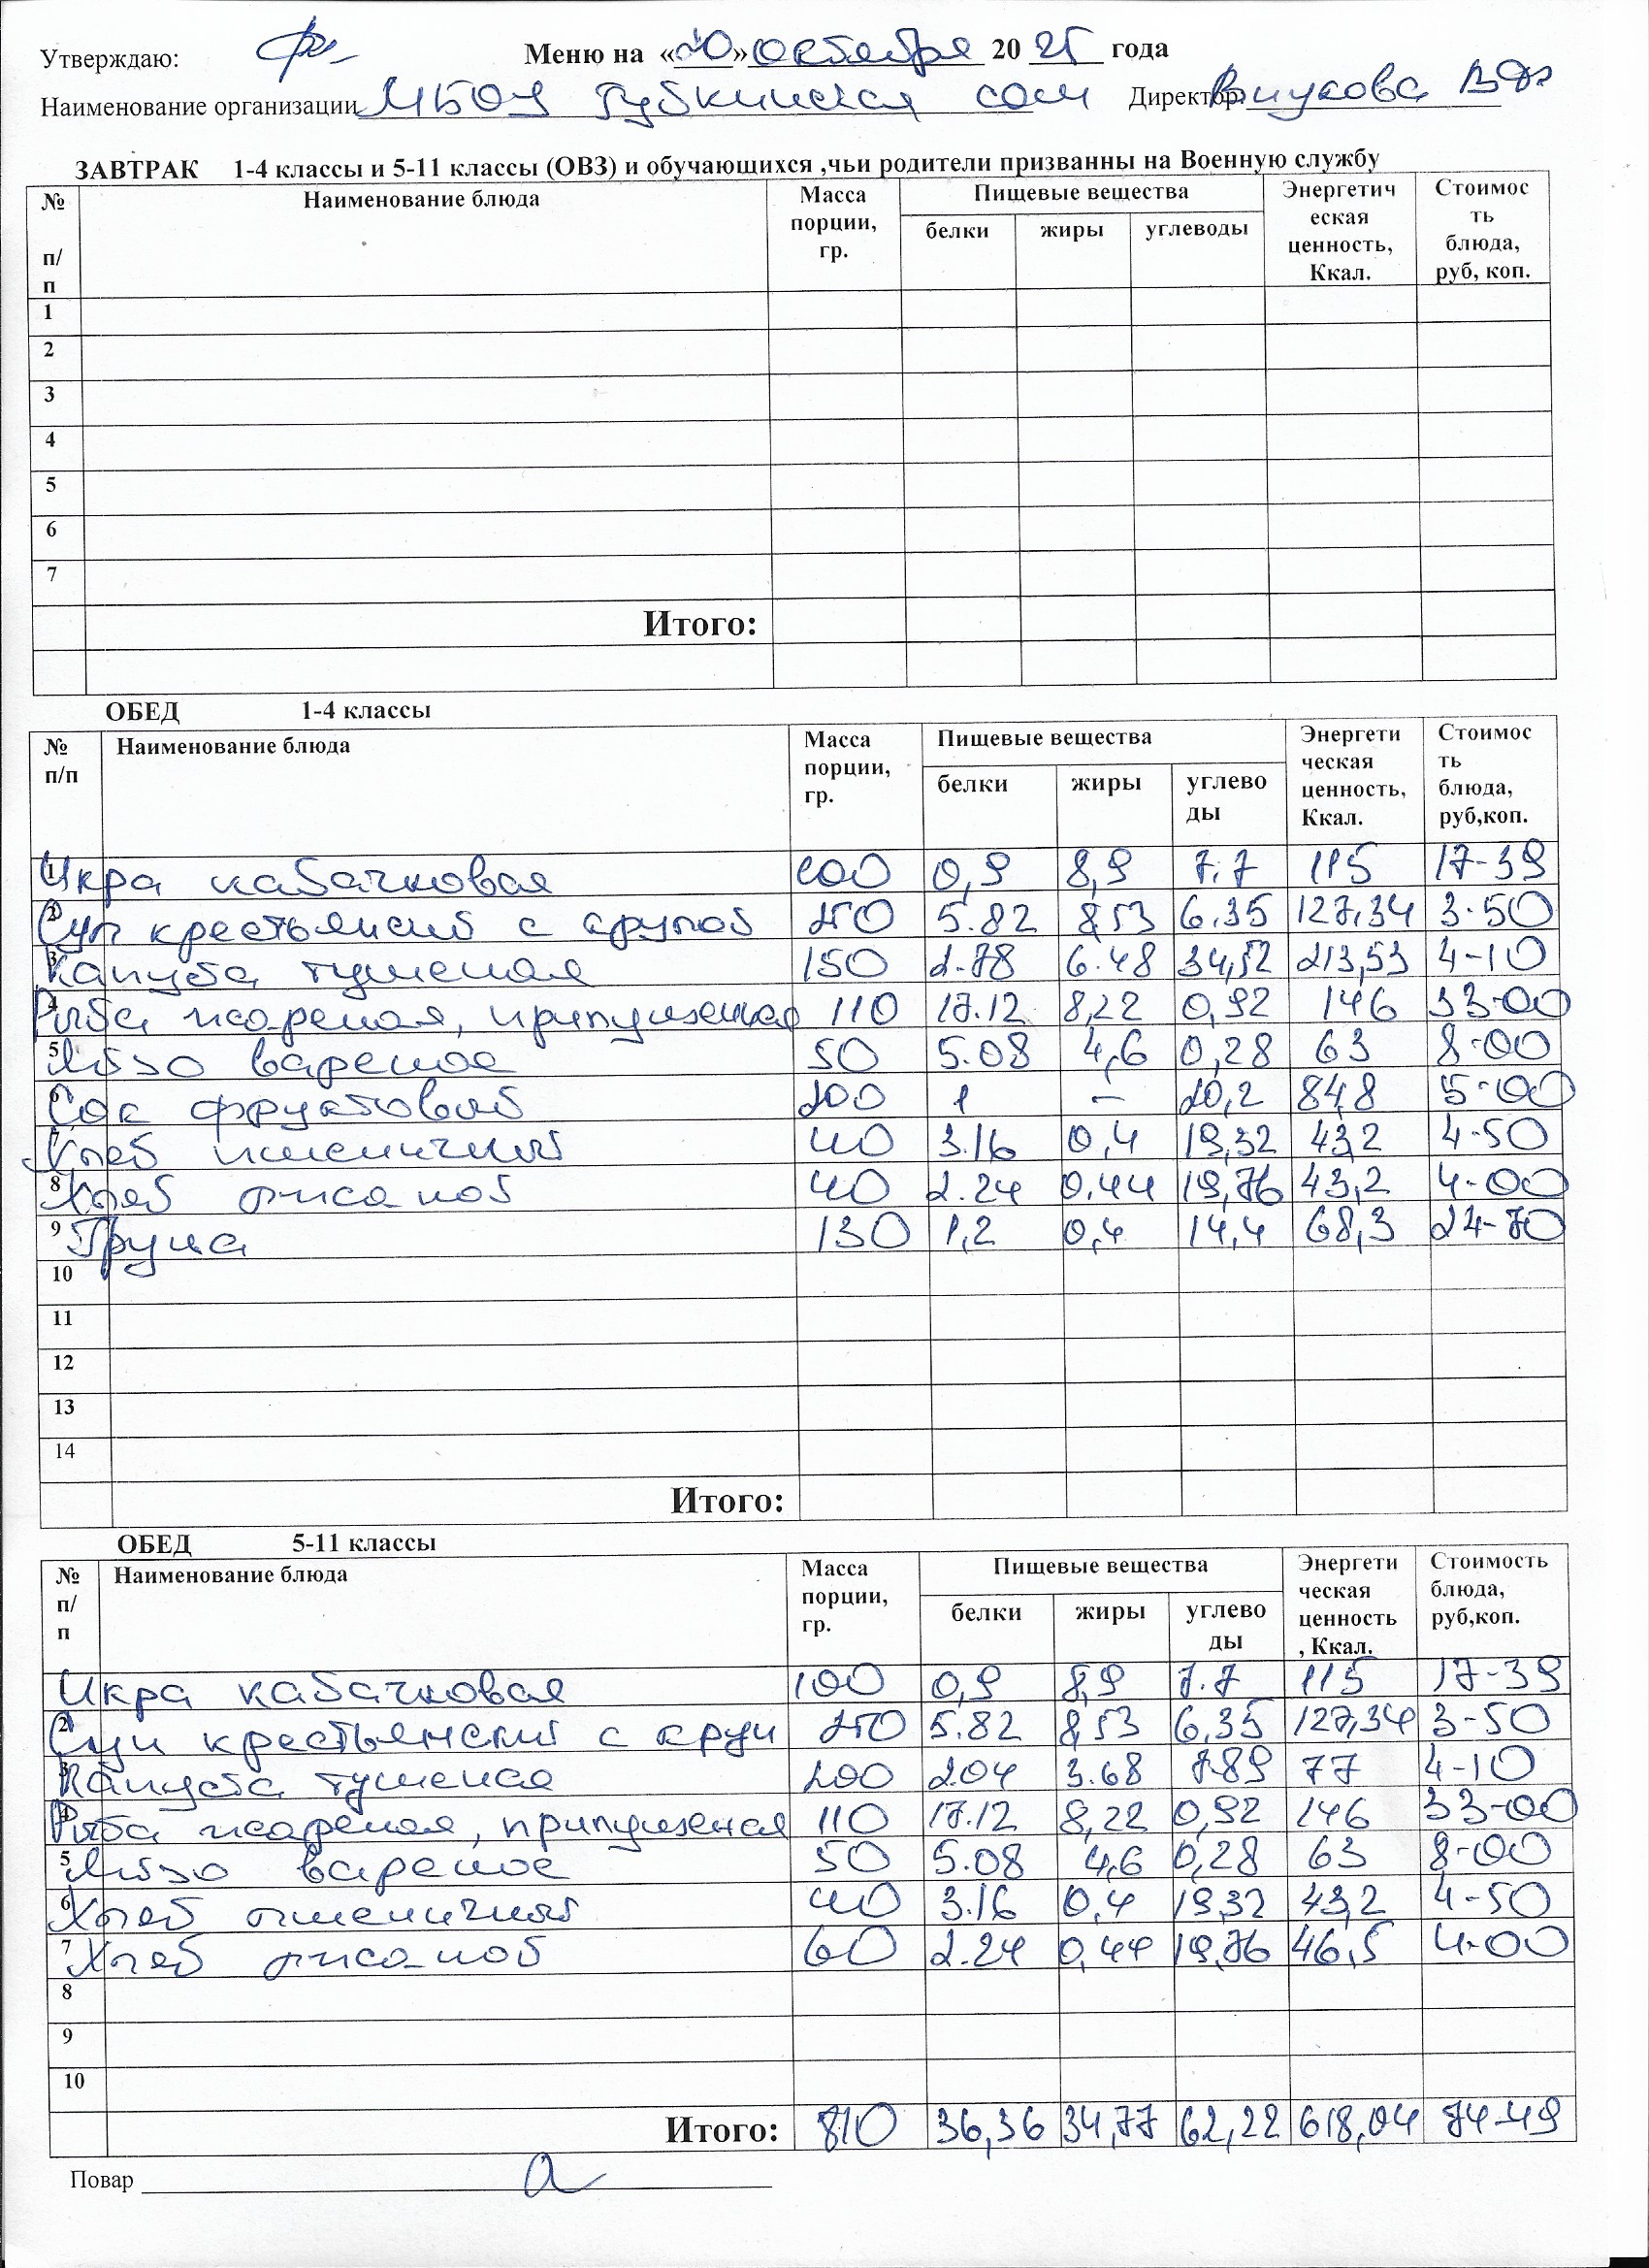 Утверждаю: Меню на «20» октября 20 25 года
Наименование организации МБОУ Губкинская сош Директор: Внукова В
ЗАВТРАК 1-4 классы и 5-11 классы (ОВЗ) и обучающихся ,чьи родители призванны на Военную службу
№ п/п Наименование блюда Масса порции, гр. Пищевые вещества Энергетическая ценность, Ккал. Стоимость блюда, руб, коп.
белки жиры углеводы
1
2
3
4
5
6
7
Итого:
ОБЕД 1-4 классы
№ п/п Наименование блюда Масса порции, гр. Пищевые вещества Энергетическая ценность, Ккал. Стоимость блюда, руб,коп.
белки жиры углеводы
1 Икра кабачковая 100 0,9 8,9 7.7 115 17-39
2 Суп крестьянский с крупой 250 5.82 8,53 6,35 127,34 3-50
3 Капуста тушеная 150 2.78 6.48 34,52 213,53 4-10
4 Рыба жареная, припущенная 110 17.12 8,22 0,92 146 33-00
5 Яйцо вареное 50 5.08 4,6 0,28 63 8-00
6 Сок фруктовый 200 1 - 20,2 84,8 5-00
7 Хлеб пшеничный 40 3.16 0,4 19,32 43,2 4-50
8 Хлеб ржаной 40 2.24 0.44 19,76 43,2 4-00
9 Груша 130 1,2 0,4 14,4 68,3 24-70
10
11
12
13
14
Итого:
ОБЕД 5-11 классы
№ п/п Наименование блюда Масса порции, гр. Пищевые вещества Энергетическая ценность, Ккал. Стоимость блюда, руб,коп.
белки жиры углеводы
Икра кабачковая 100 0,9 8,9 7.7 115 17-39
2 Суп крестьянский с круп 250 5.82 8,53 6,35 127,34 3-50
3 Капуста тушеная 200 2.04 3.68 7.89 77 4-10
4 Рыба жареная, припущеная 110 17.12 8,22 0,92 146 33-00
5 Яйцо вареное 50 5.08 4,6 0,28 63 8-00
6 Хлеб пшеничный 40 3.16 0,4 19,32 43,2 4-50
7 Хлеб ржаной 60 2.24 0,44 19,76 46,5 4-00
8
9
10
Итого: 810 36,36 34,77 62,22 618,04 74-49
Повар